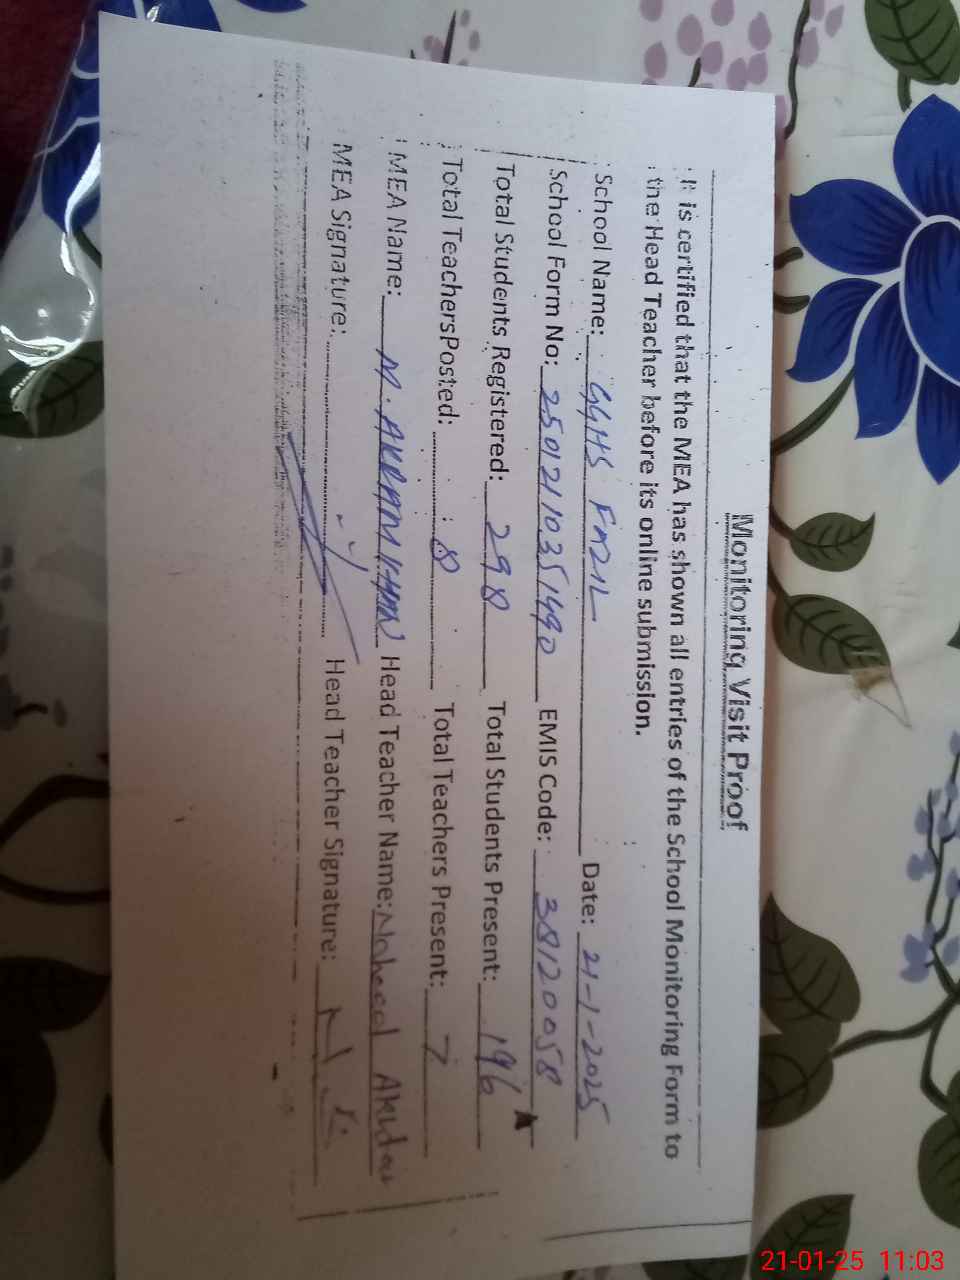 Monitoring Visit Proof
It is certified that the MEA has shown all entries of the School Monitoring Form to
the Head Teacher before its online submission.
School Name: GGHS FAZIL Date: 21-1-2025
School Form No: 2501210351490 EMIS Code: 38120058
Total Students Registered: 298 Total Students Present: 196
Total TeachersPosted: 8 Total Teachers Present: 7
MEA Name: M. AKRAM KHAN Head Teacher Name: Naheed Akhtar
MEA Signature: Head Teacher Signature:
21-01-25 11:03